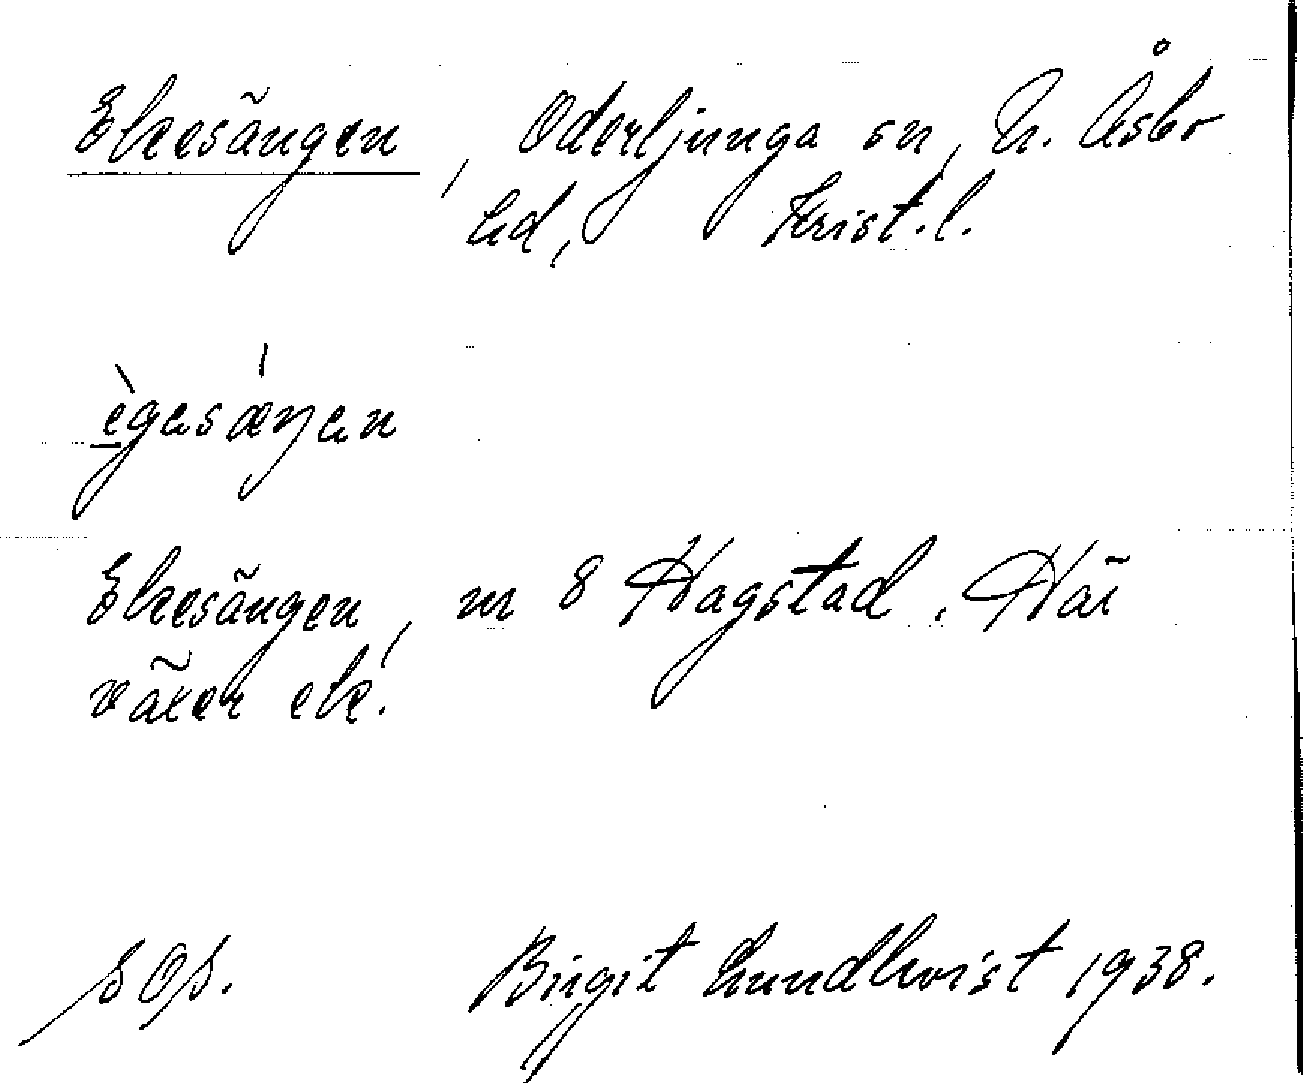 Ekesängen, Oderljunga sn, N. Åsbo
hd, Krist. l.
ègasæŋan
Ekesängen, nr 8 Hagstad. Här
växer ek.
Birgit Lundkvist 1938.